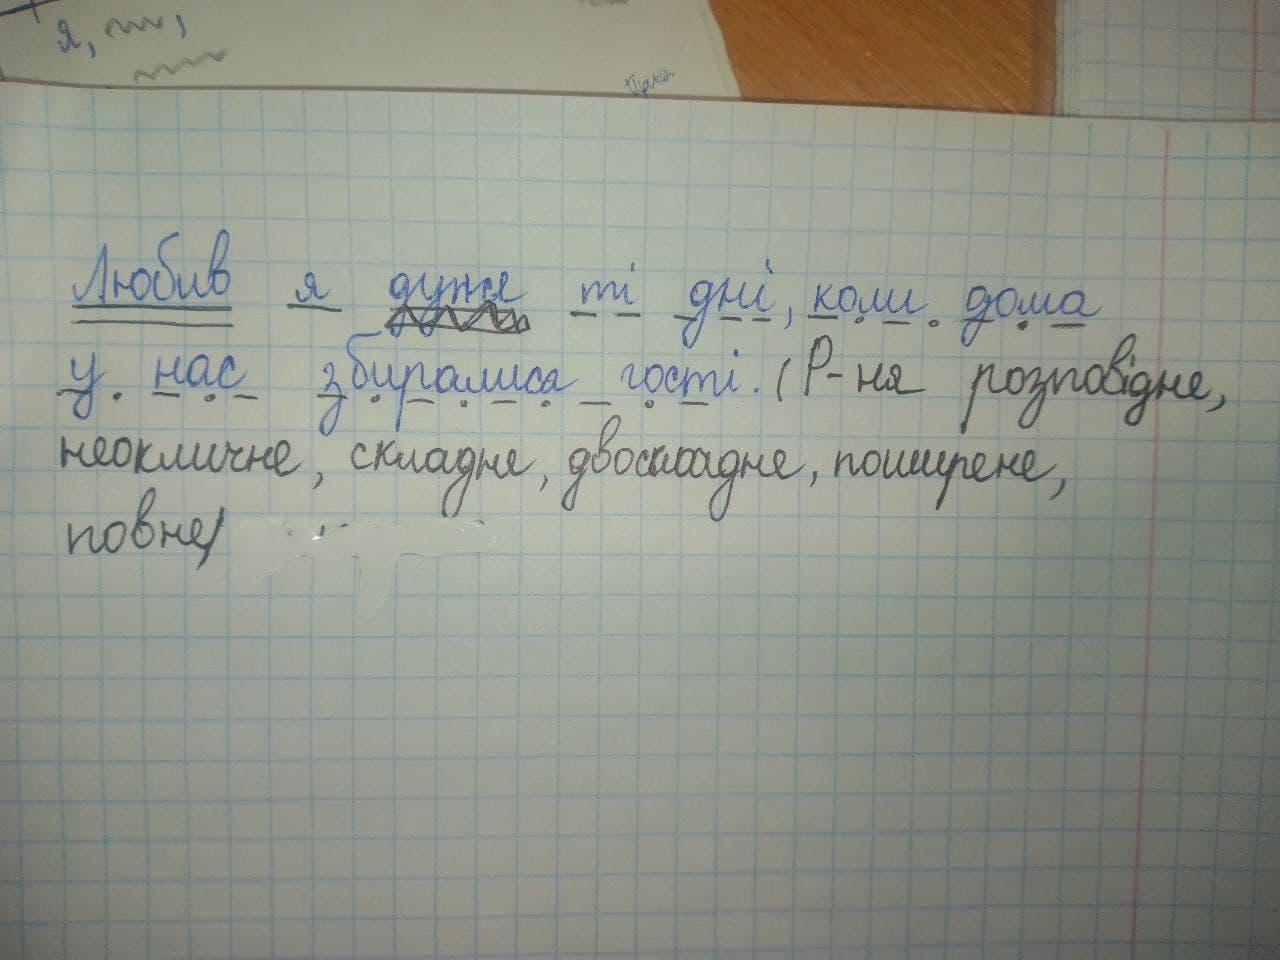 я,
Любив я дуже ті дні, коли дома
у нас збиралися гості. (Р-ня розповідне,
неокличне, складне, двоскладне, поширене,
повне)